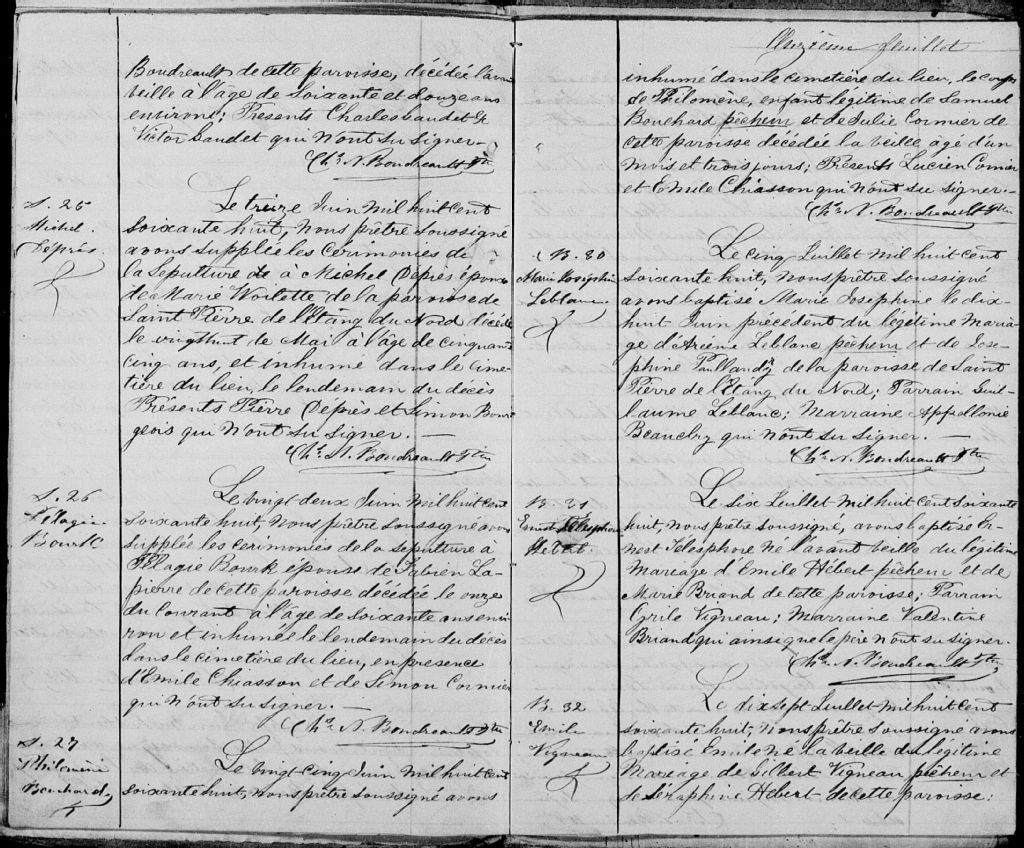 Boudreault de cette paroisse, décédée l'avant
veille à l'âge de Soixante et douze ans
environ; Presents Charles Gaudet &
Victor Gaudet qui n'ont su signer.
Chs. N. Boudreault Ptre
S. 25
Michel
Déprés.
Le treize Juin mil huit cent
soixante huit, Nous prêtre soussigné
avons supplée les cérimonies de
la Sepulture de à Michel Déprés époux
de Marie Woilette de la paroisse de
Saint Pierre de l'Etang du Nord décédé
le vingt huit de Mai à l'âge de cinquante
cinq ans, et inhumé dans le cime-
tière du lieu, le lendemain du décès
Présents Pierre Déprés et Simon Bour
geois qui n'ont su signer. —
Chs. N. Boudreault Ptre
S. 26
Pélagie
Bourk
Le vingt deux Juin mil huit cent
soixante huit, Nous prêtre soussigné avons
supplée les cerimonies de la sepulture à
Pélagie Bourk epouse de Fabien La-
pierre de cette paroisse decédée le onze
du Courant à l'âge de soixante ans envi
ron et inhumée le lendemain du decès
dans le cimetière du lieu, en presence
d'Emile Chiasson et de Simon Cormier
qui n'ont su signer. —
Chs. N. Boudreault Ptre
S. 27
Philomène
Bouchard,
Le vingt cinq Juin mil huit cent
soixante huit, Nous prêtre soussigné avons
Onzième feuillet
inhumé dans le cemetière du lieu, le corps
de Philomène, enfant légitime de Samuel
Bouchard pêcheur et de Julie Cormier de
cette paroisse décédée la veille âgé d'un
mois et trois jours; Présents Lucien Cormier
et Emile Chiasson qui n'ont su signer. —
Chs. N. Boudreault Ptre
B. 30
Marie Josephine
Leblanc.
Le cinq Juillet mil huit cent
soixante huit, Nous prêtre soussigné
avons baptisé Marie Josephine le dix-
huit Juin précédent du légetime Maria-
ge d'Arsène Leblanc pêcheur et de Jose-
phine de la paroisse de Saint
Pierre de l'Etang du Nord; Parrain Guil-
laume Leblanc; Marraine Appollonie
qui n'ont su signer. —
Chs. N. Boudreault Ptre
B. 31
Ernest Télesphore
Hébert.
Le six Juillet mil huit cent soixante
huit, Nous prêtre soussigné, avons baptisé Er-
nest Télesphore né l'avant veille du légitime
Mariage d'Emile Hébert pêcheur et de
Marie Briand de cette paroisse; Parrain
Cyrile Vigneau; Marraine Valentine
Briand qui ainsi que le père n'ont su signer.
Chs. N. Boudreault Ptre
B. 32
Emile
Vigneau
Le dix sept Juillet mil huit cent
soixante huit, Nous prêtre soussigné avons
baptisé Emile né la veille du legitime
Mariage de Gilbert Vigneau pêcheur et
de Séraphine Hébert de cette paroisse;